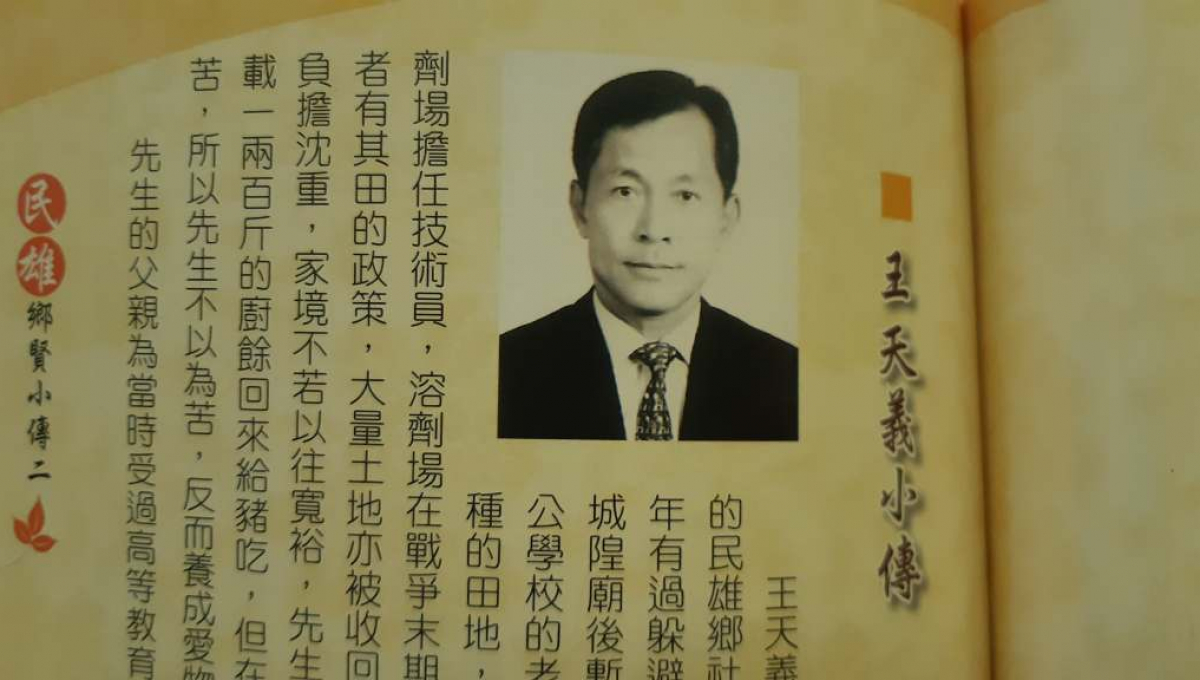 王天義小傳
王天義
的民雄鄉社
年有過躲避
城隍廟後暫
公學校的老
種的田地，
劑場擔任技術員，溶劑場在戰爭末期
者有其田的政策，大量土地亦被收回
負擔沈重，家境不若以往寬裕，先生
載一兩百斤的廚餘回來給豬吃，但在
苦，所以先生不以為苦，反而養成愛物
先生的父親為當時受過高等教育
民雄鄉賢小傳二